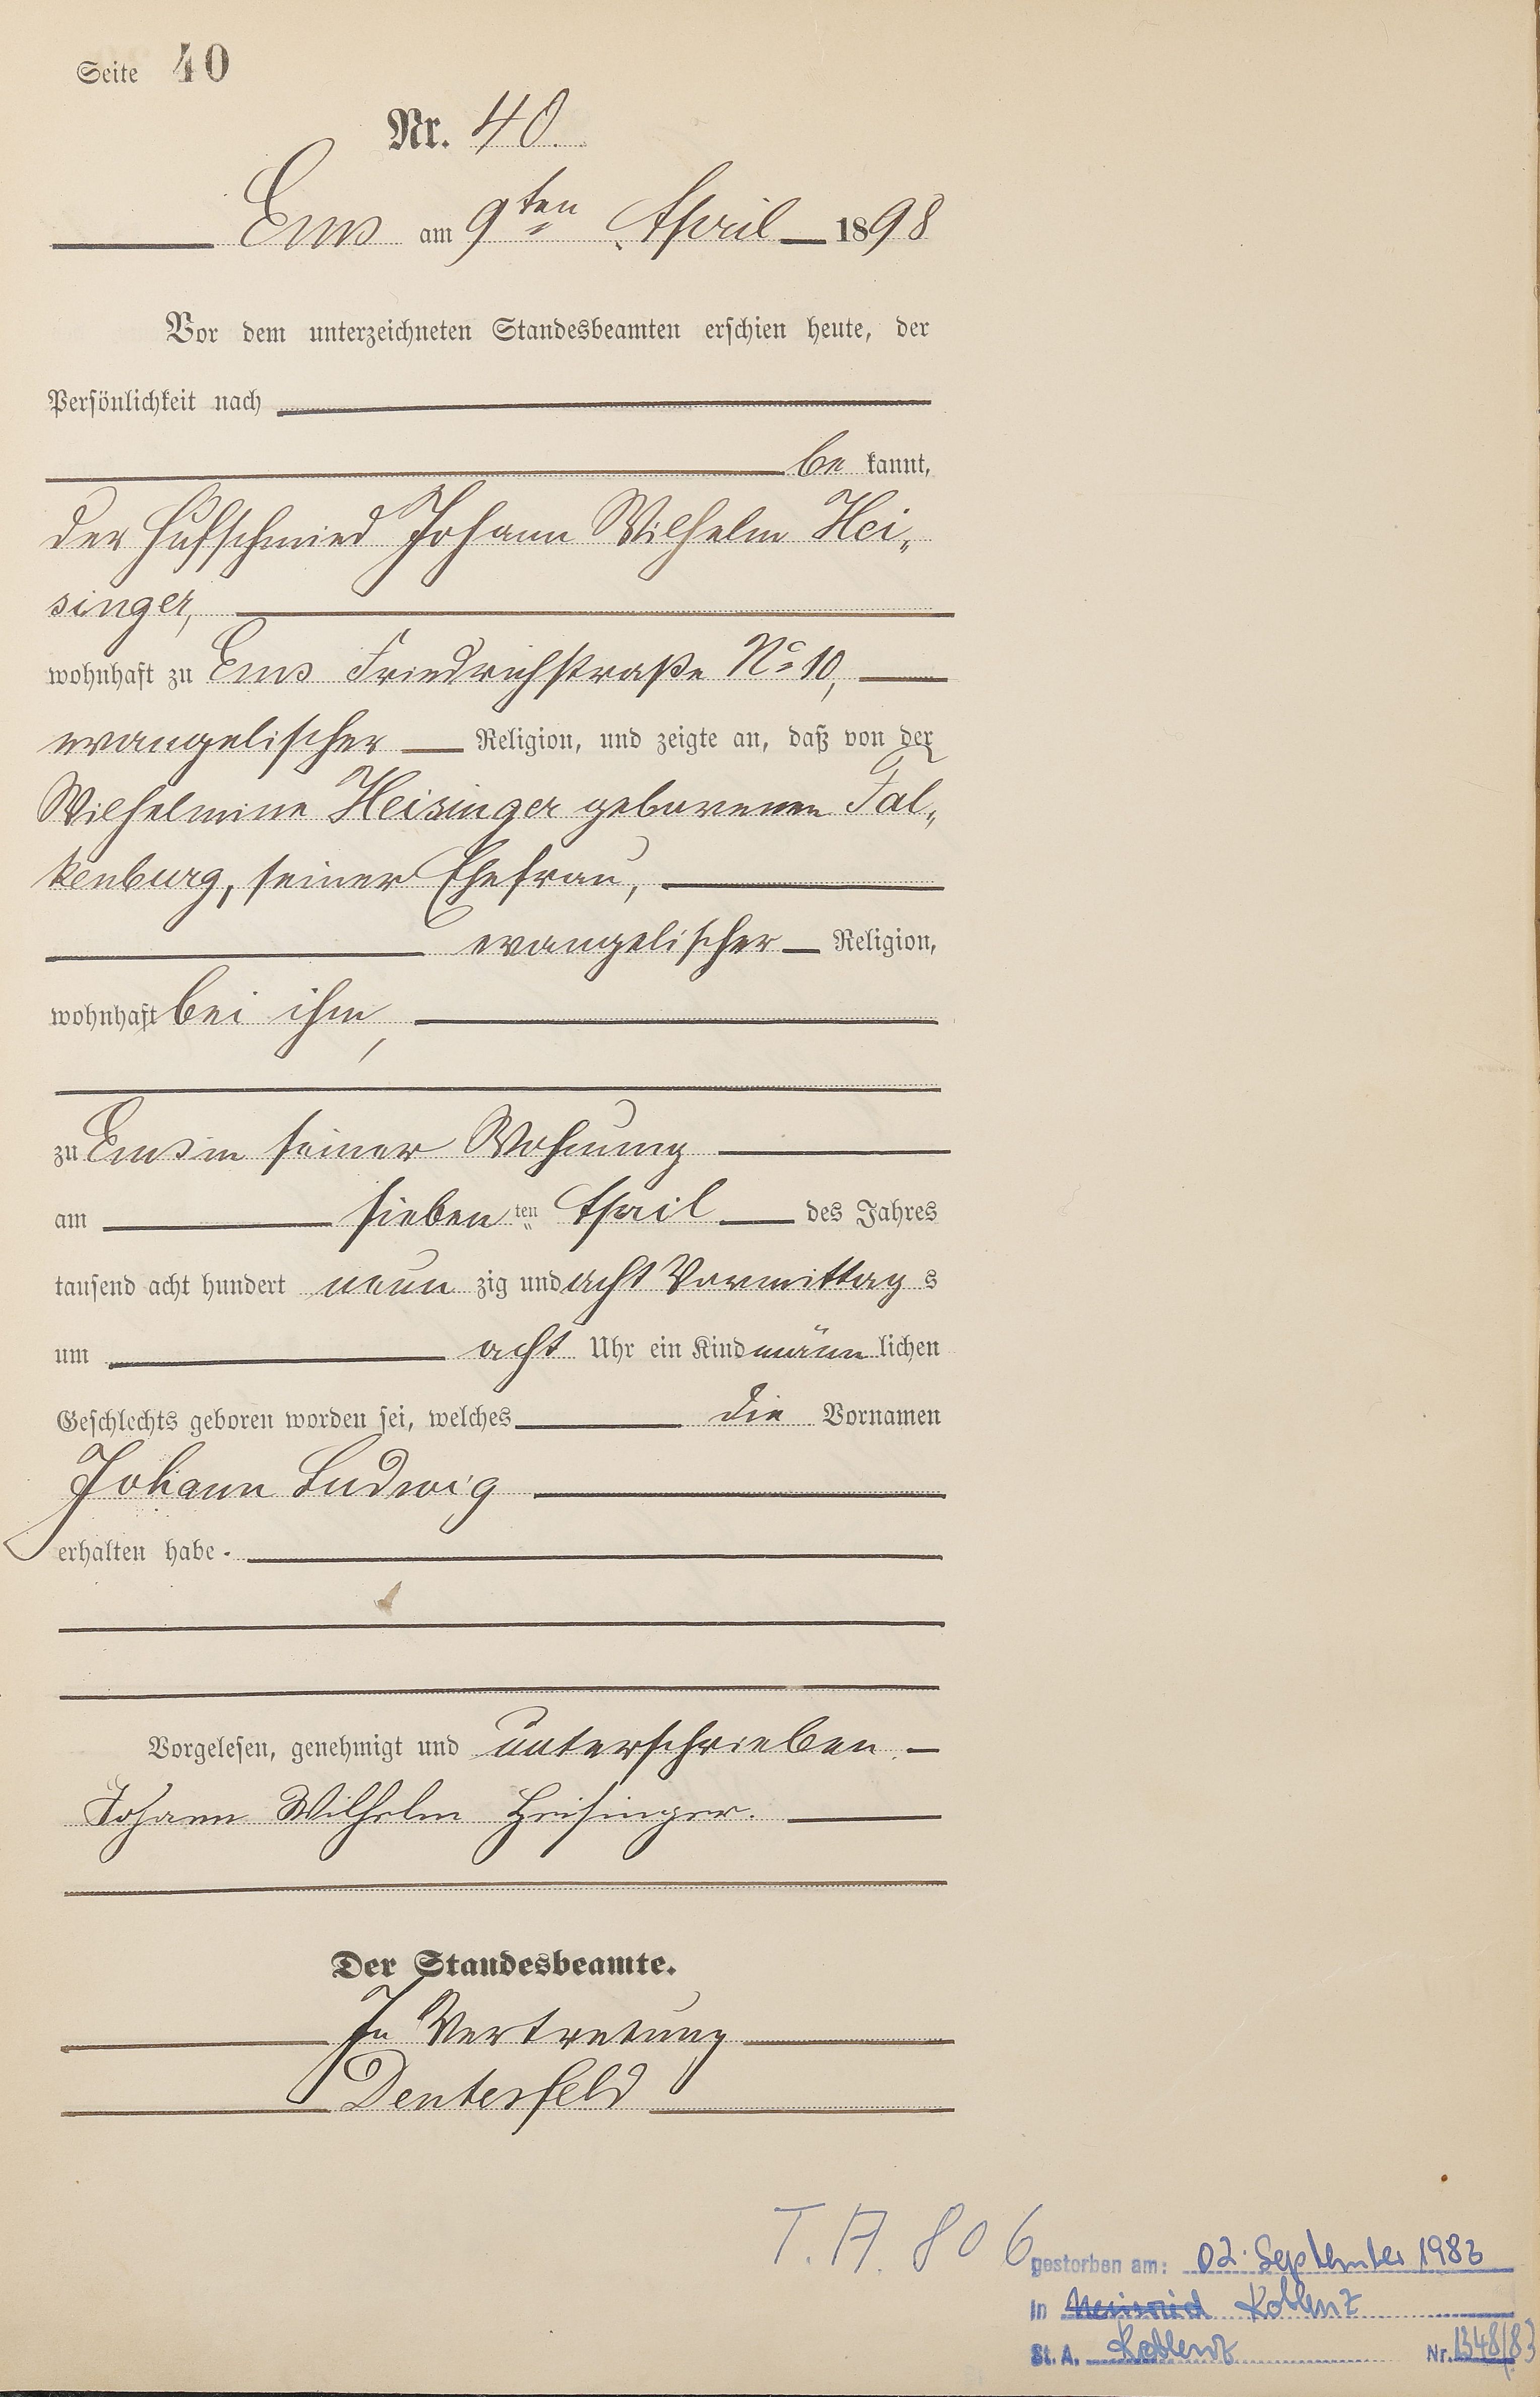 Seite 40
Nr. 40.
Ems am 9ten April 1898
Vor dem unterzeichneten Standesbeamten erschien heute, der
Persönlichkeit nach
be kannt,
der Hufschmied Johann Wilhelm Hei„
singer,
wohnhaft zu Ems Friedrichstraße No 10,
evangelischer Religion, und zeigte an, daß von der
Wilhelmine Heisinger geborenen Fal„
kenburg, seiner Ehefrau,
evangelischer Religion,
wohnhaft bei ihm,
zu Ems in seiner Wohnung
am sieben ten April des Jahres
tausend acht hundert neun zig und acht Vormittag s
um acht Uhr ein Kind männ lichen
Geschlechts geboren worden sei, welches die Vornamen
Johann Ludwig
erhalten habe.
Vorgelesen, genehmigt und unterschrieben.
Johann Wilhelm Heisinger.
Der Standesbeamte.
In Vertretung
Denterfeld
T. A. 806
gestorben am: 02. September 1983
In Neuwied Koblenz
St. A. Koblenz Nr. 1348/83